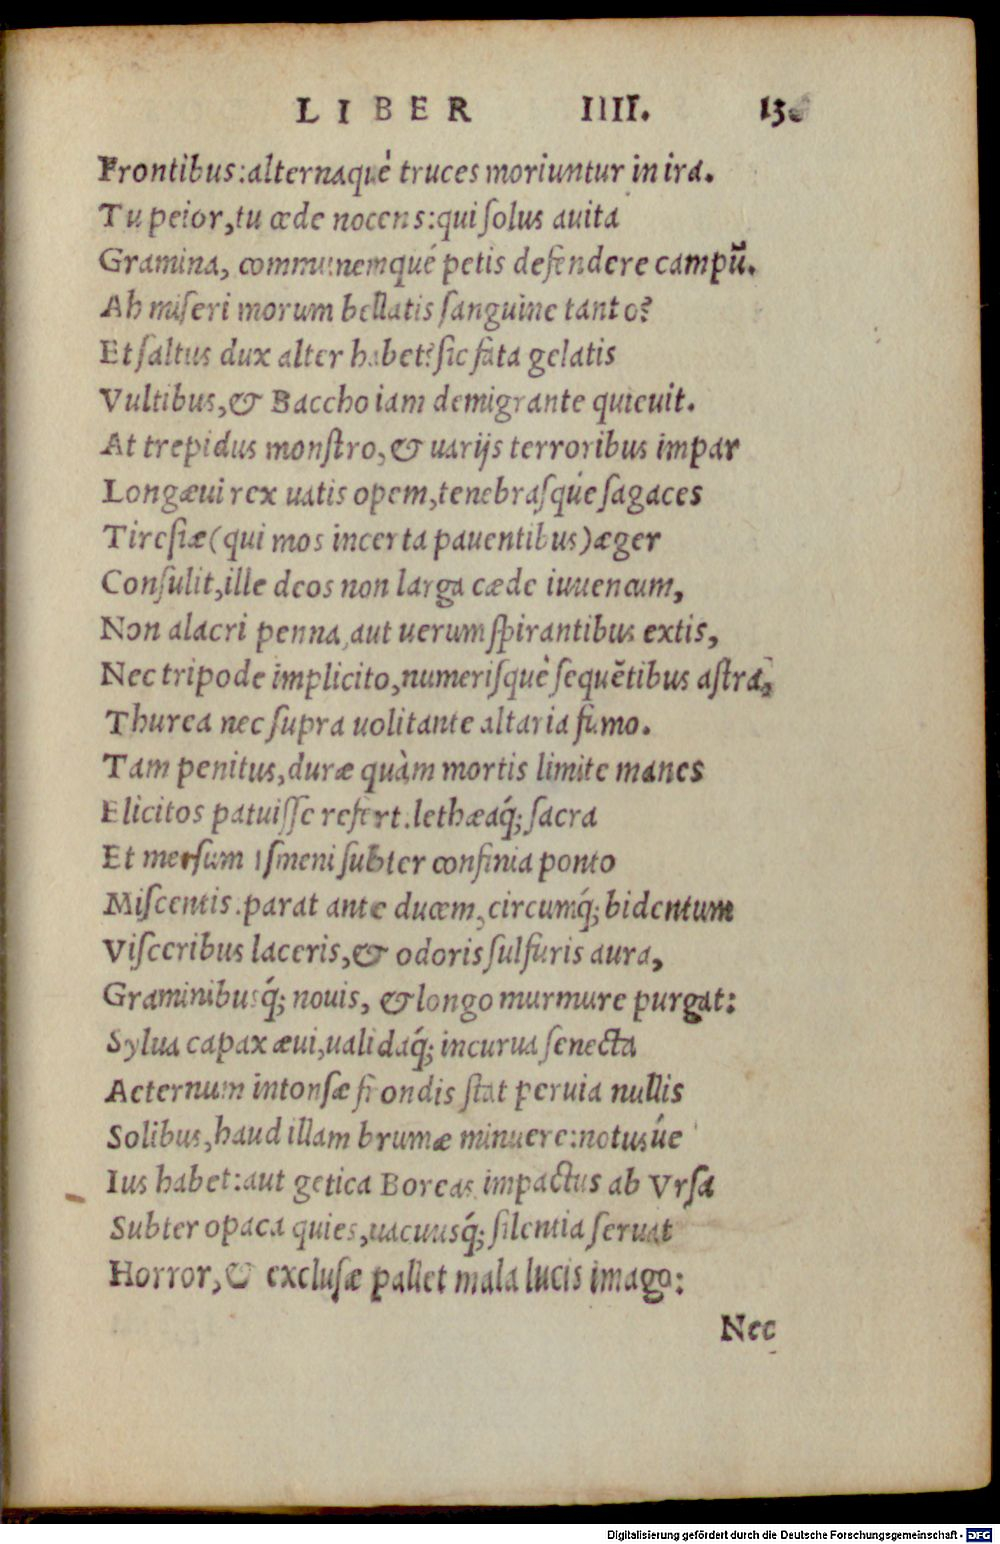 LIBER IIII. 13
Frontibus: alternaquè truces moriuntur in ira.
Tu peior, tu cæde nocens: qui ſolus auita
Gramina, communemqué petis defendere campū.
Ah miſeri morum bellatis ſanguine tanto?
Et ſaltus dux alter habet? ſic fata gelatis
Vultibus, & Baccho iam demigrante quieuit.
At trepidus monſtro, & uarijs terroribus impar
Longæui rex uatis opem, tenebraſqúe ſagaces
Tireſiæ (qui mos incerta pauentibus) æger
Conſulit, ille deos non larga cæde iuuencum,
Non alacri penna, aut uerum ſpirantibus extis,
Nec tripode implicito, numeriſquè ſequētibus aſtra,
Thurea nec ſupra uolitante altaria fumo.
Tam penitus, duræ quàm mortis limite manes
Elicitos patuiſſe refert. lethæaq́; ſacra
Et merſum Iſmeni ſubter confinia ponto
Miſcentis. parat ante ducem, circumq́; bidentum
Viſceribus laceris, & odoris ſulfuris aura,
Graminibusq́; nouis, & longo murmure purgat:
Sylua capax æui, ualidaq́; incurua ſenecta
Aeternum intonſæ frondis ſtat peruia nullis
Solibus, haud illam brumæ minuere: notusúe
Ius habet: aut getica Boreas impactus ab Vrſa
Subter opaca quies, uacuusq́; ſilentia ſeruat
Horror, & excluſæ pallet mala lucis imago:
Nec
Digitalisierung gefördert durch die Deutsche Forschungsgemeinschaft - DFG